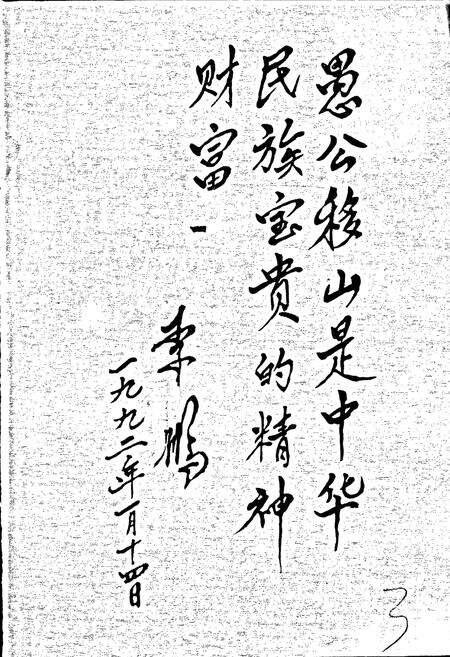 愚公移山是中华
民族宝贵的精神
财富一
李鹏
一九九二年一月十四日
3